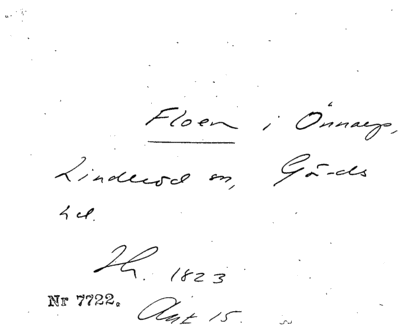 Floen i Önnarp,
Linderöd sn, Gärds
hd.
Th. 1823
Nr 7722. Akt 15.